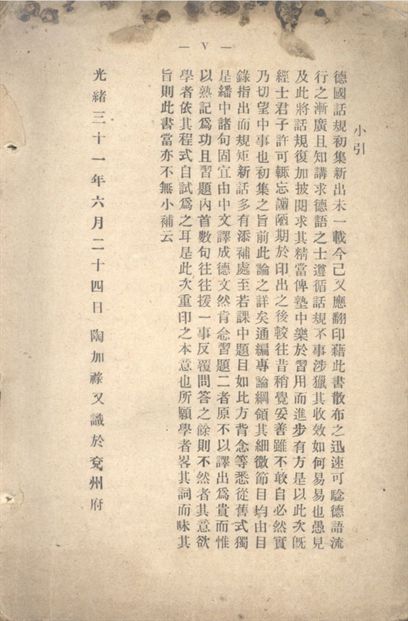 — V —
小引
德國話規初集新出未一載今己又應翻印藉此書散布之迅速可騐德語流
行之漸廣且知講求德語之士遵循話規不事涉獵其收效如何易易也愚見
及此將話規復加披閱求其精當俾塾中樂於習用而進步有方是以此次旣
經士君子許可輒忘譾陋期於印出之後較往昔稍覺妥善雖不敢自必然實
乃切望中事也初集之旨前此論之詳矣通編專論綱領其細微節目均由目
錄指出而規矩新話多有添補處至若課中題目如比方背念等悉從舊式獨
是繙中諸句固宜由中文譯成德文然肯念習題二者原不以譯出爲貴而惟
以熟記爲功且習題內首數句往往援一事反覆問答之餘則不然者其意欲
學者依其程式自試爲之耳是此次重印之本意也所願學者畧其詞而味其
旨則此書當亦不無小補云
光緒三十一年六月二十四日陶加祿又識於兗州府